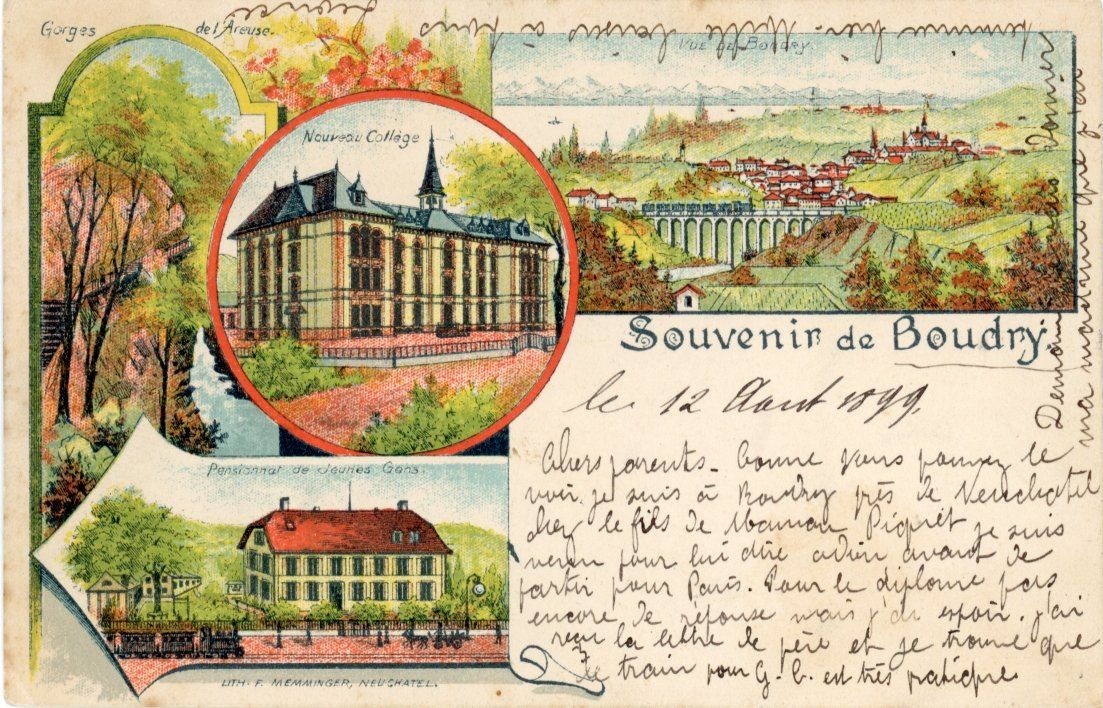 Gorges de l'Areuse.
Nouveau Collège
Vue de Boudry.
Souvenir de Boudry.
Pensionnat de Jeunes Gens.
LITH. F. MEMMINGER, NEUCHATEL.
le 12 Aout 1899.
Chers parents - Comme vous pouvez le
voir je suis à Boudry près de Neuchatel
chez le fils de Maman Piguet je suis
venu pour lui dire adieu avant de
partir pour Paris. Pour le diplome pas
encore de réponse mais j'ai espoir. j'ai
reçu la lettre de père et je trouve que
le train pour G. C. est très pratique
Demain
ma mandarine que j'ai
hier. Melle à Paris